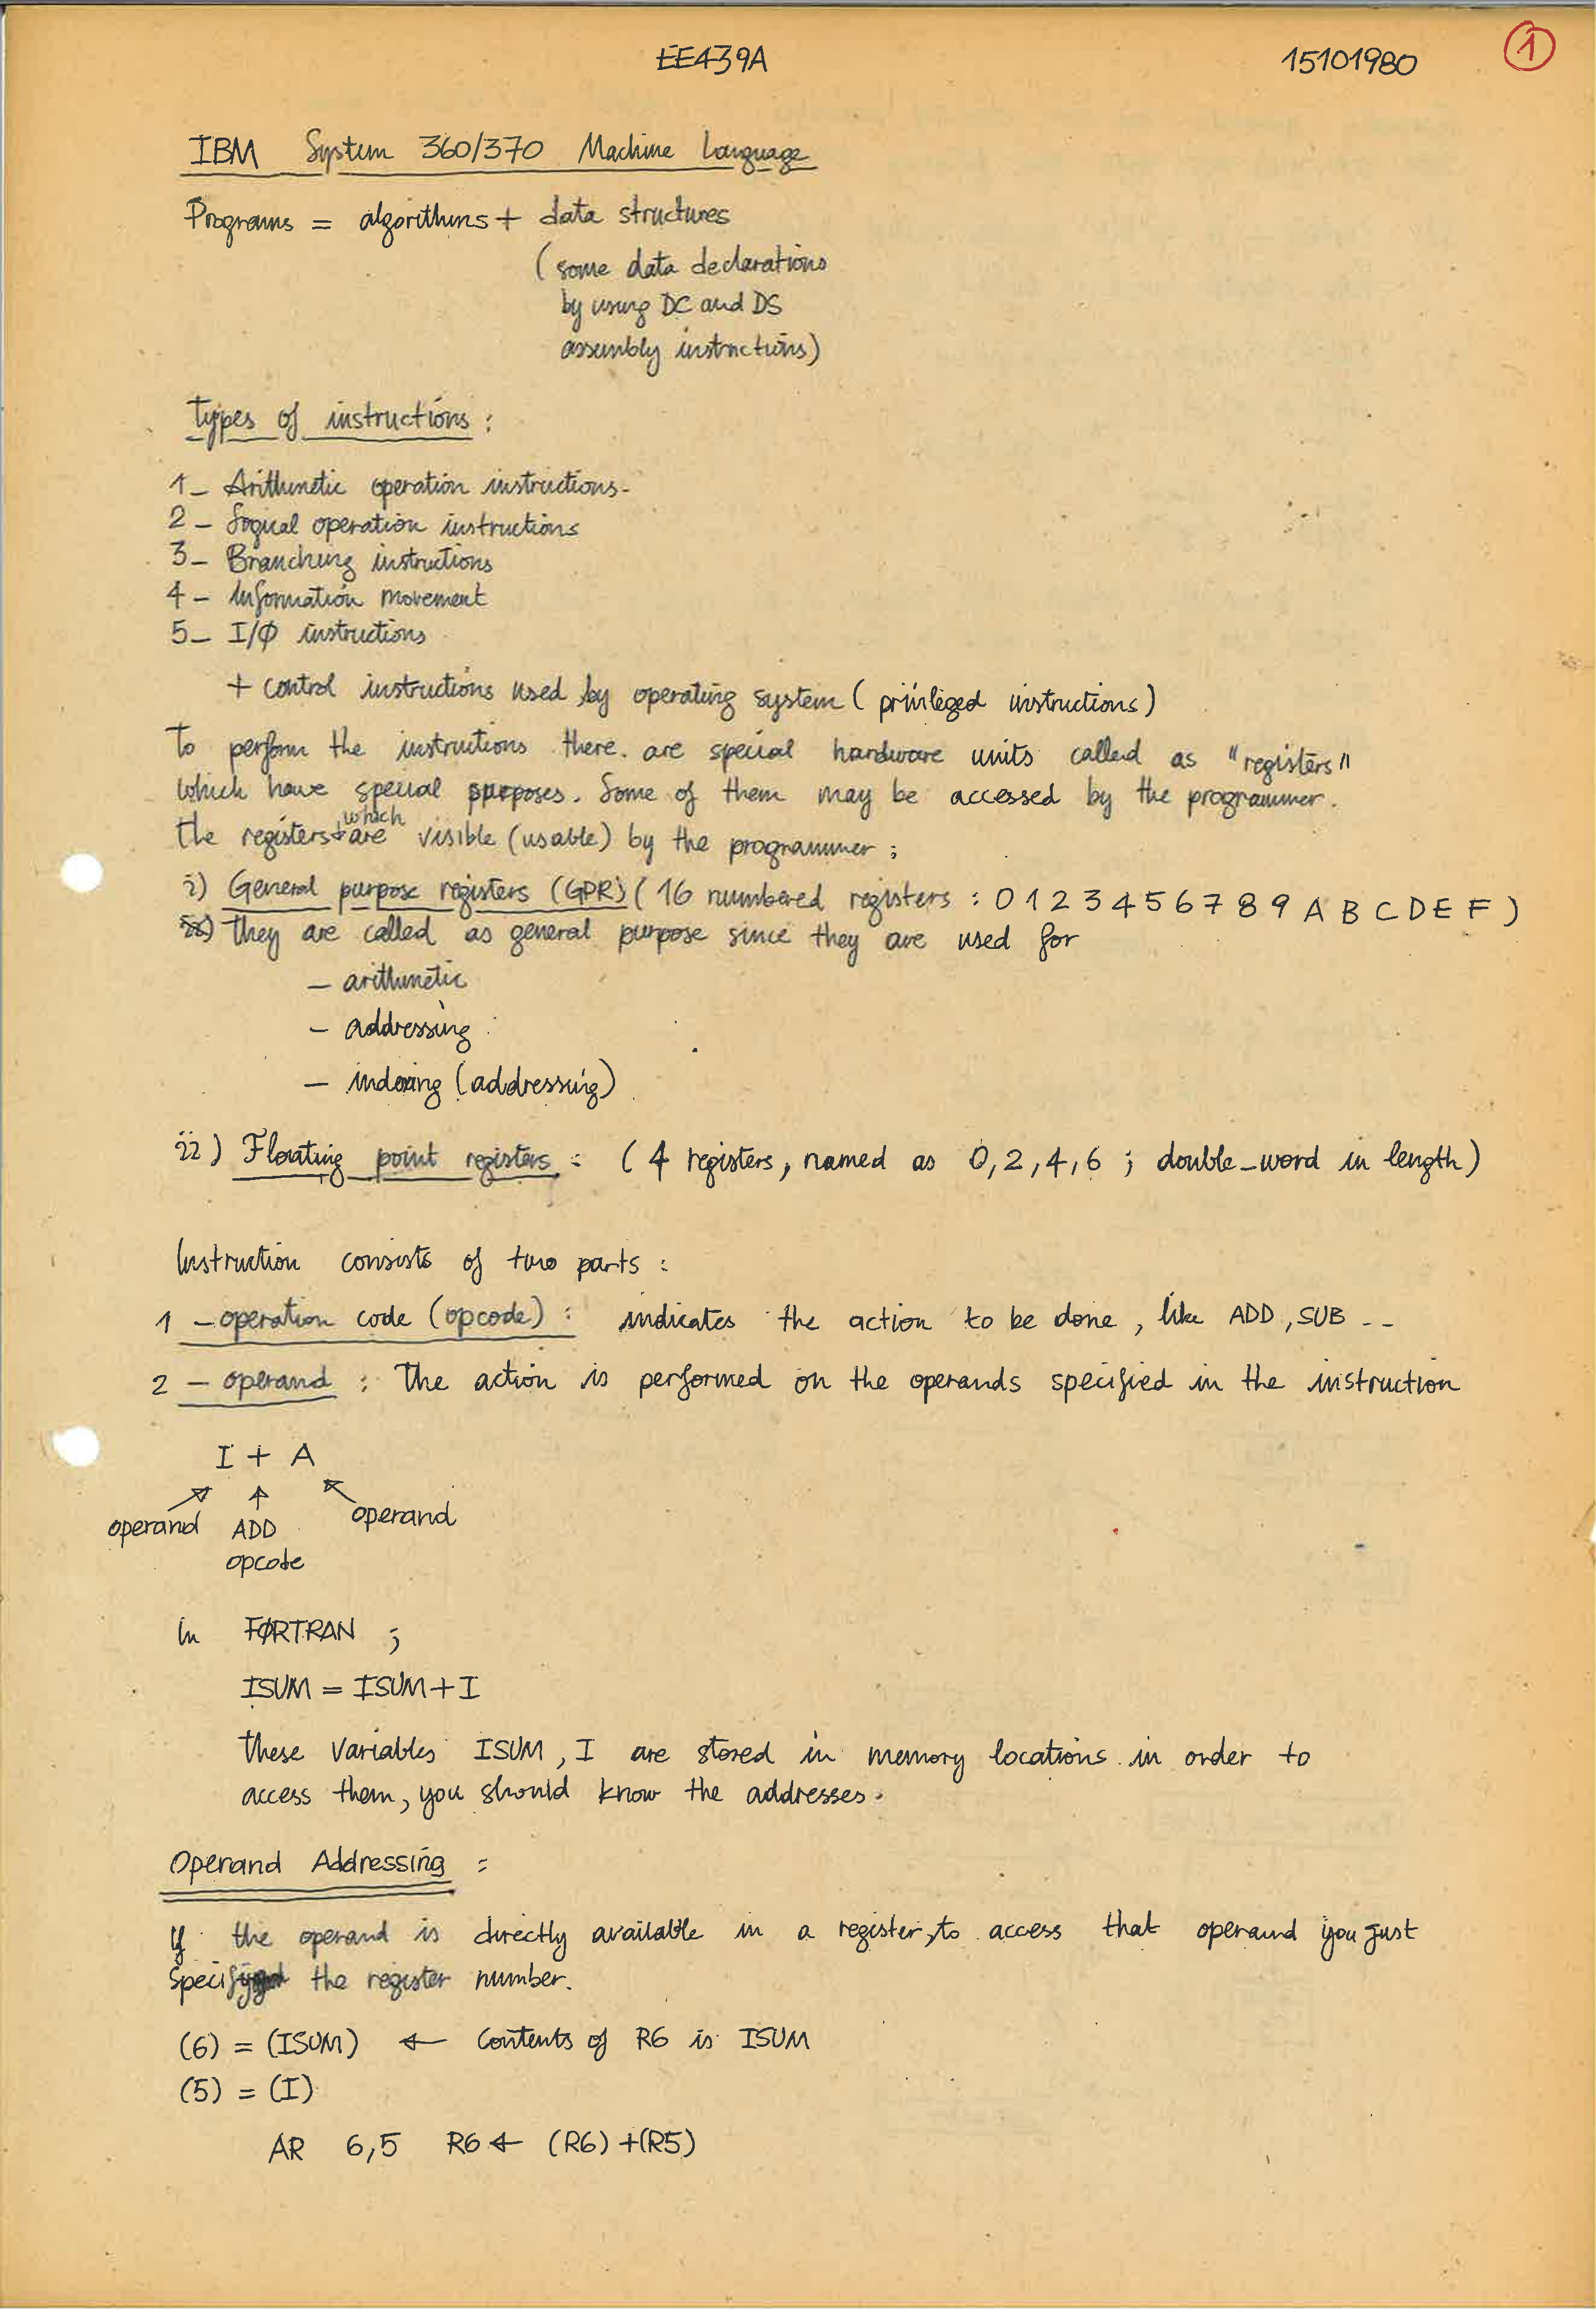 EE439A 15101980 1
IBM System 360/370 Machine Language
Programs = algorithms + data structures
(some data declarations
by using DC and DS
assembly instructions)
Types of instructions :
1_ Arithmetic operation instructions.
2_ Logical operation instructions
3_ Branching instructions
4_ Information movement
5_ I/Ø instructions
+ control instructions used by operating system ( privileged instructions )
To perform the instructions there are special hardware units called as "registers"
which have special purposes. Some of them may be accessed by the programmer.
The registers which are visible (usable) by the programmer ;
i) General purpose registers (GPR) ( 16 numbered registers : 0 1 2 3 4 5 6 7 8 9 A B C D E F )
They are called as general purpose since they are used for
— arithmetic
— addressing
— indexing (addressing)
ii) Floating point registers : ( 4 registers, named as 0,2,4,6 ; double_word in length )
Instruction consists of two parts :
1 _ operation code (opcode) : indicates the action to be done, like ADD, SUB ..
2 — operand : The action is performed on the operands specified in the instruction
I + A
operand ADD operand
opcode
In FØRTRAN ;
ISUM = ISUM+I
These variables ISUM, I are stored in memory locations in order to
access them, you should know the addresses.
Operand Addressing :
If the operand is directly available in a register, to access that operand you just
specify the register number.
(6) = (ISUM) ← Contents of R6 is ISUM
(5) = (I)
AR 6,5 R6 ← (R6) +(R5)